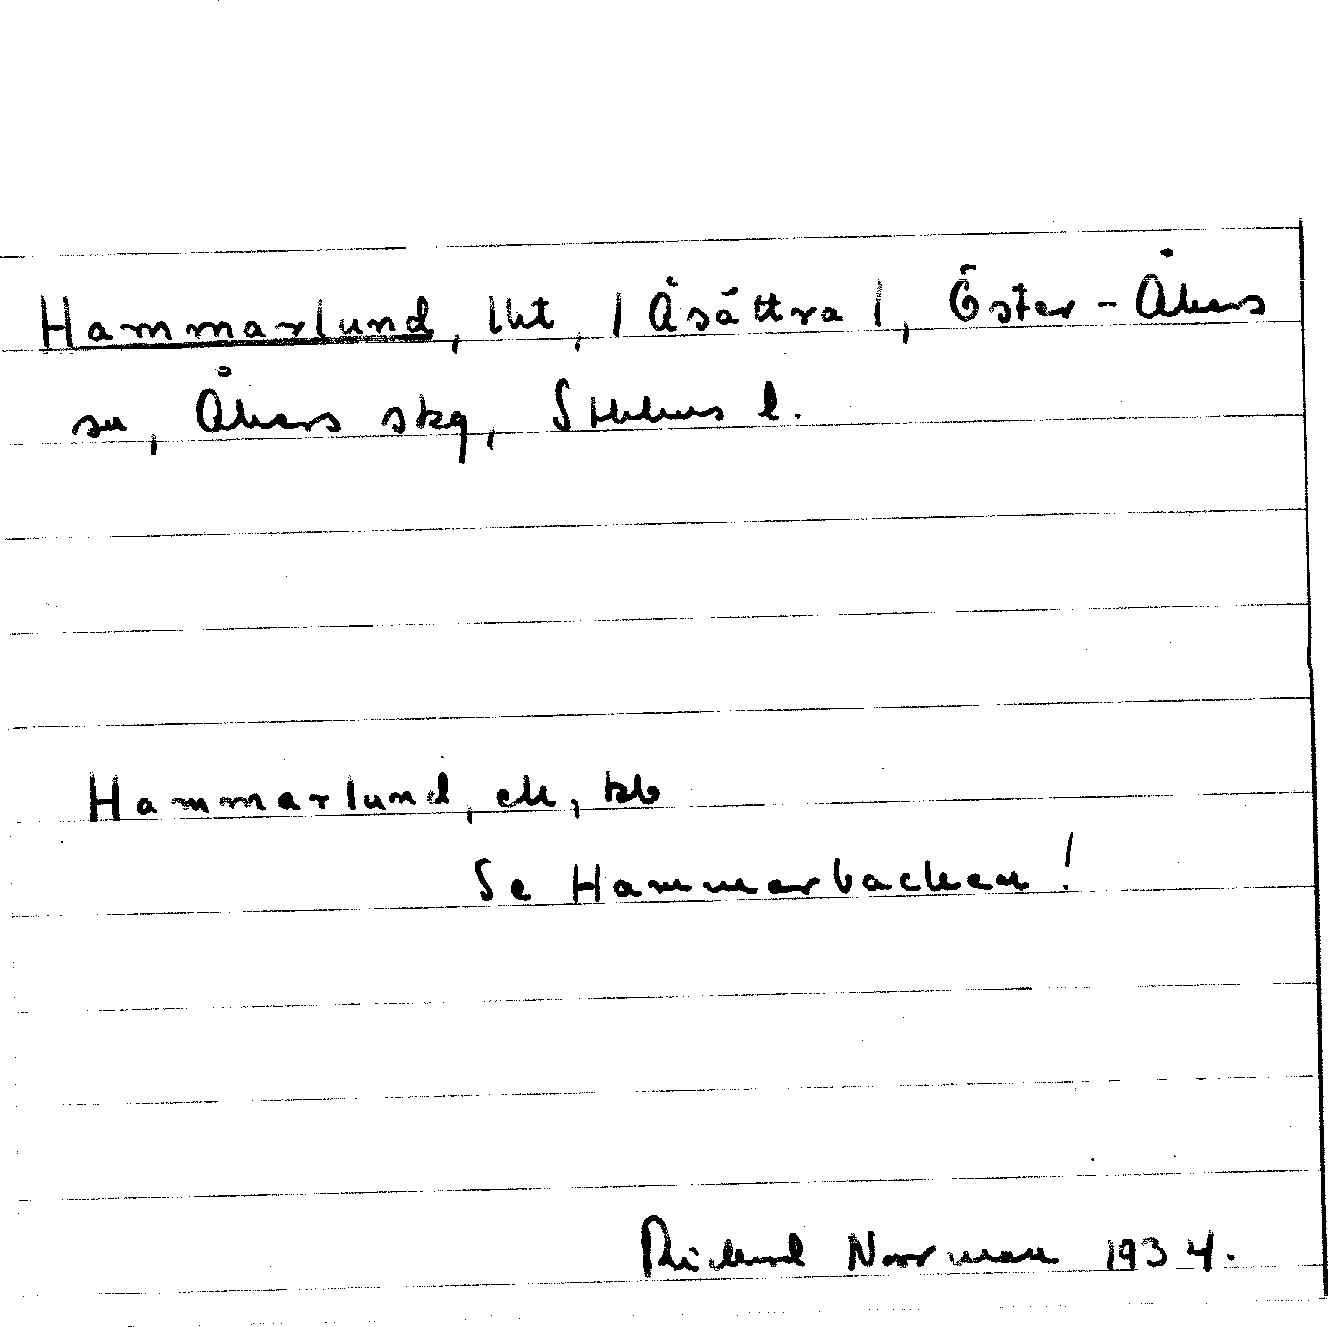 Hammarlund, lht, / Åsättra /, Öster-Åkers
sn, Åkers skg, Sthlms l.
Hammarlund, ek, kb
Se Hammarbacken!
Richard Norrman 1934.